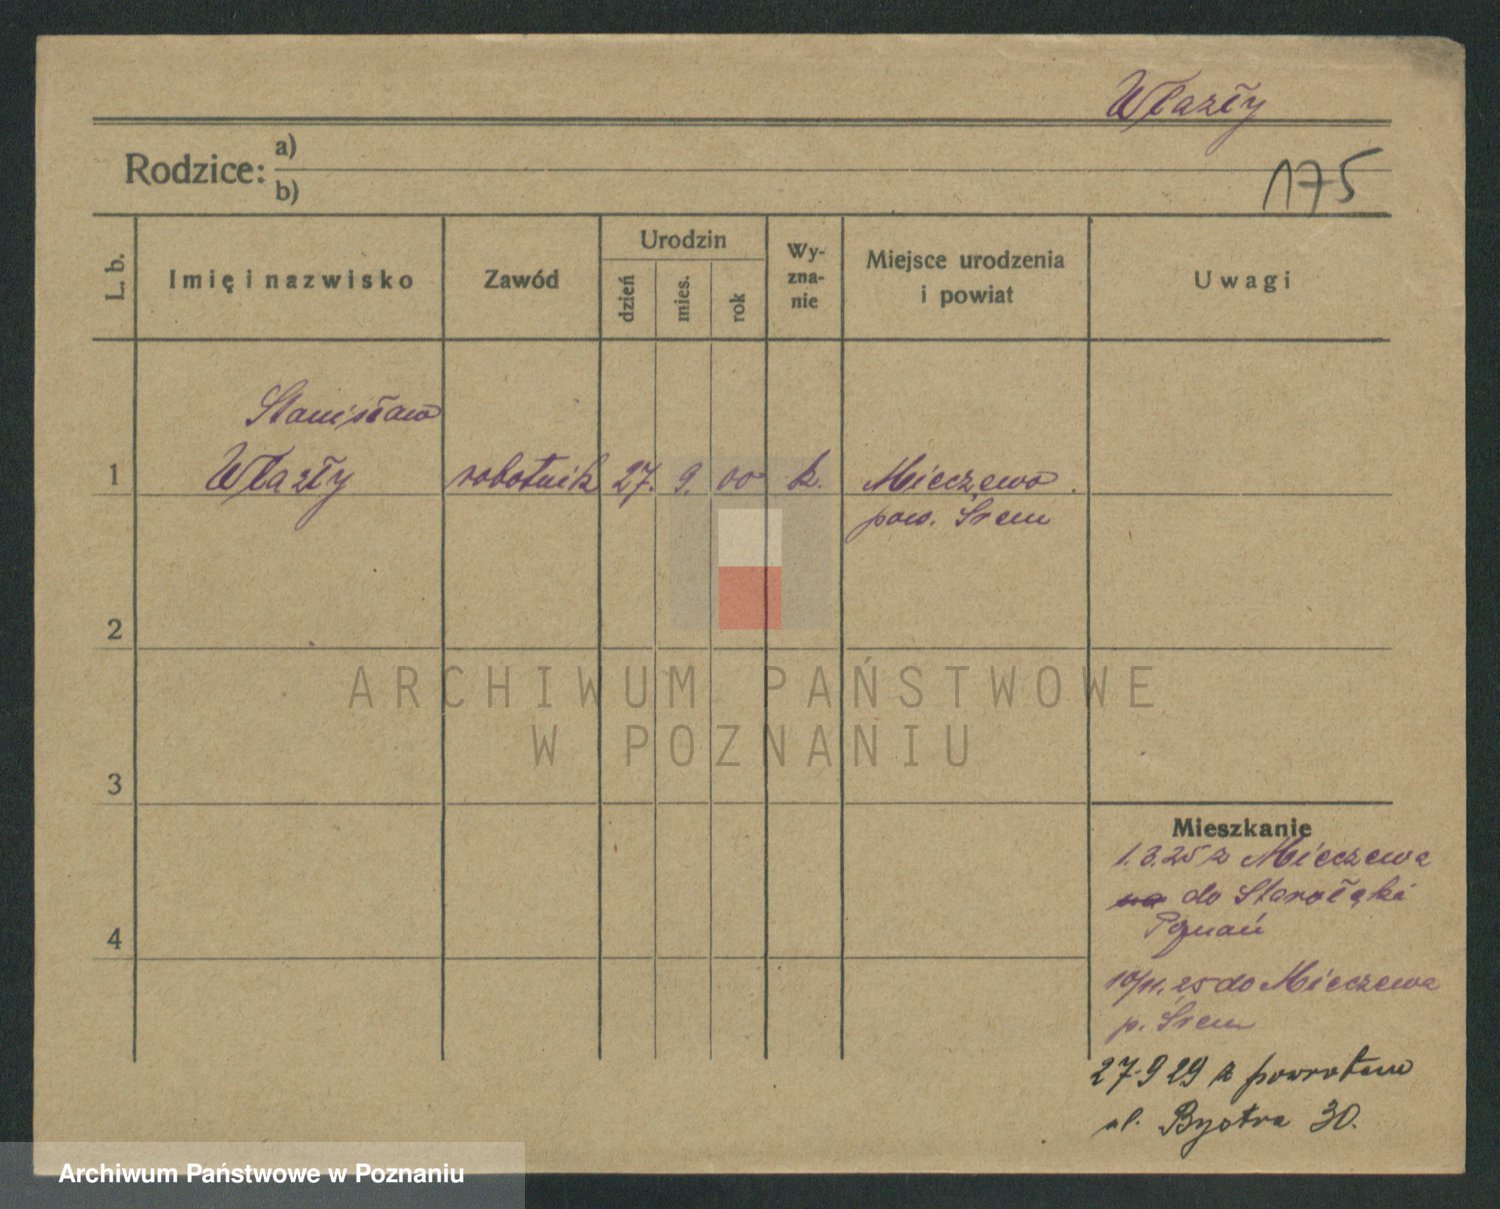 Włazły
Rodzice: a)
b)
175
L. b.
Imię i nazwisko
Zawód
Urodzin
dzień
mies.
rok
Wy-
zna-
nie
Miejsce urodzenia
i powiat
Uwagi
Stanisław
1 Włazły robotnik 27. 9. 00 k. Mieczewo
pow. Śrem
2
ARCHIWUM PAŃSTWOWE
W POZNANIU
3
Mieszkanie
1.3.25 z Mieczewa
na do Starołęki
Poznań
4
10/11.25 do Mieczewa
p. Śrem
27-9 29 z powrotem
ul. Bystra 30.
Archiwum Państwowe w Poznaniu